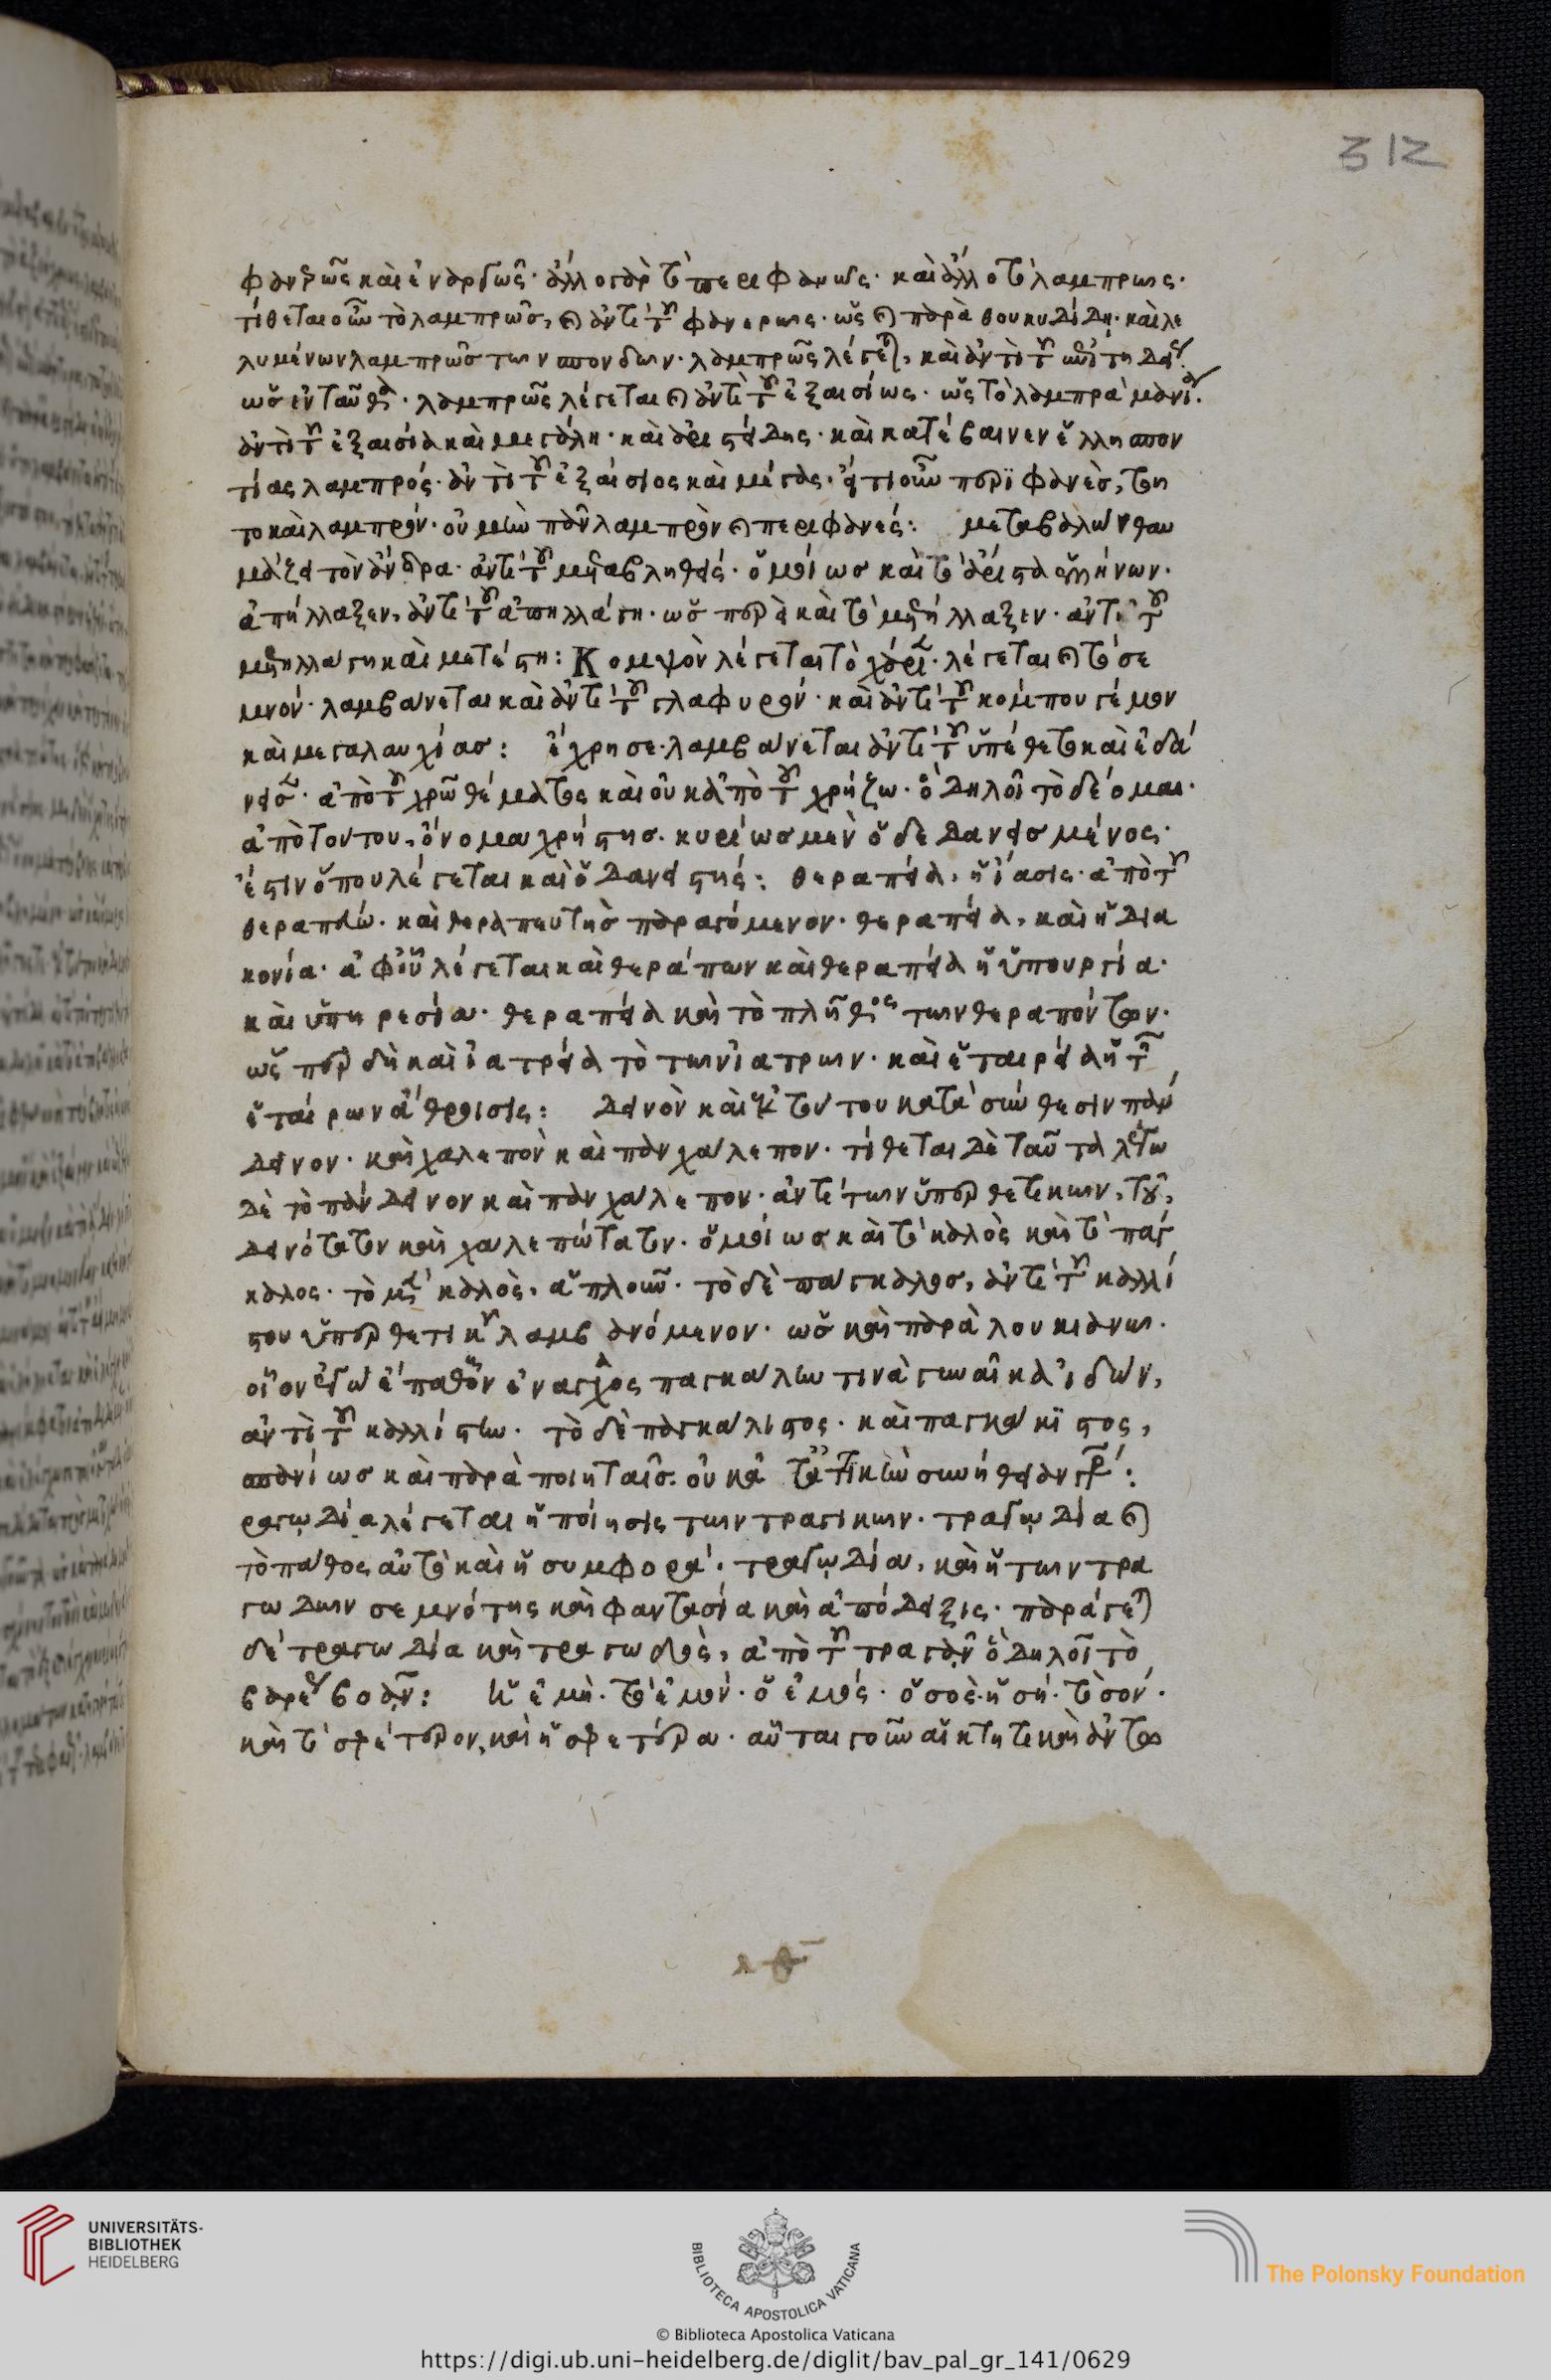 312
φανερῶς καὶ ἐναργῶς· ἄλλο γὰρ τὸ περιφανῶς· καὶ ἄλλο τὸ λαμπρως·
τίθεται οὖν τὸ λαμπρῶς, καὶ ἀντὶ τοῦ φανερως· ὡς καὶ παρὰ θουκυδίδη· καὶ λε
λυμένων λαμπρῶς των σπονδων· λαμπρῶς λέγεται, καὶ ἀντὶ τοῦ
ὡς ἐνταῦθα· λαμπρῶς λέγεται καὶ ἀντὶ τοῦ ἐξαισίως· ὡς τὸ λαμπρὰ μανία·
ἀντὶ τοῦ ἐξαισία καὶ μεγάλη· καὶ ἀριστείδης· καὶ κατέβαινεν ἕλλησπον
τίας λαμπρός· ἀντὶ τοῦ ἐξαίσιος καὶ μέγας· εἴ τι οὖν περιφανὲς, τοῦ
το καὶ λαμπρόν· οὐ μὴν πᾶν λαμπρὸν καὶ περιφανές: μεταβαλὼν θαυ
μάζει τὸν ἄνδρα· ἀντὶ τοῦ μεταβληθείς· ὁμοίως καὶ τὸ ἄριστα ἑλλήνων·
ἀπήλλαξεν, ἀντὶ τοῦ ἀπηλλάγη· ὥσπερ καὶ τὸ μετήλλαξεν· ἀντὶ τοῦ
μετηλλάγη καὶ μετέστη: Κομψὸν λέγεται τὸ χάριεν· λέγεται καὶ τὸ σε
μνόν· λαμβάνεται καὶ ἀντὶ τοῦ γλαφυρόν· καὶ ἀντὶ τοῦ κόμπου γέμον
καὶ μεγαλαυχίας: ἔχρησε· λαμβάνεται ἀντὶ τοῦ ὑπέθετο καὶ ἐδά
νεισεν· ἀπὸ τοῦ χρῶ θέματος καὶ οὐκ ἀπὸ τοῦ χρήζω· ὃ δηλοῖ τὸ δέομαι·
ἀπὸ τούτου, ὄνομα χρήστης· κυρίως μὲν ὁ δεδανεισμένος·
ἔστιν ὅπου λέγεται καὶ ὁ δανειστής: θεραπεία, ἡ ἴασις· ἀπὸ τοῦ
θεραπεύω· καὶ θεραπευτὴς παραγόμενον· θεραπεία, καὶ ἡ δια
κονία· ἀφ' οὗ λέγεται καὶ θεράπων καὶ θεραπεία ἡ ὑπουργία·
καὶ ὑπηρεσία· θεραπεία καὶ τὸ πλῆθος των θεραπόντων·
ὥσπερ δὴ καὶ ἰατρεία τὸ των ἰατρων· καὶ ἑταιρεία ἡ τῶν
ἑταίρων ἄθροισις: δεινὸν καὶ ἐκ τούτου κατὰ σύνθεσιν πάν
δεινον· καὶ χαλεπὸν καὶ παγχάλεπον· τίθεται δὲ ταῦτα
δὲ τὸ πάνδεινον καὶ παγχάλεπον· ἀντὶ των ὑπερθετικων,
δεινότατον καὶ χαλεπώτατον· ὁμοίως καὶ τὸ καλὸς καὶ τὸ πάγ
καλος· τὸ μὲν καλὸς, ἁπλοῦν· τὸ δὲ πάγκαλος, ἀντὶ τοῦ καλλί
στου ὑπερθετικοῦ λαμβανόμενον· ὡς καὶ παρὰ λουκιανω·
οἷον ἐγὼ ἔπαθον ἔναγχος παγκάλην τινὰ γυναῖκα ἰδών,
ἀντὶ τοῦ καλλίστην· τὸ δὲ παγκάλιστος· καὶ παγκάκιστος,
σπανίως καὶ παρὰ ποιηταῖς·
ραγωδία λέγεται ἡ ποίησις των τραγικων· τραγωδία καὶ
τὸ πάθος αὐτὸ καὶ ἡ συμφορά· τραγωδία, καὶ ἡ των τρα
γωδων σεμνότης καὶ φαντασία καὶ ἀπόδειξις· παράγεται
δὲ τραγωδία καὶ τραγωδὸς, ἀπὸ τοῦ τραγᾶν ὃ δηλοῖ τὸ
βαρὺ βοᾶν: Ἡ ἐμὴ· τὸ ἐμόν· ὁ ἐμός· ὁ σὸς· ἡ σή· τὸ σόν·
καὶ τὸ σφέτερον, καὶ ἡ σφετέρα· αὗται γοῦν αἱ κτητικαὶ ἀντω